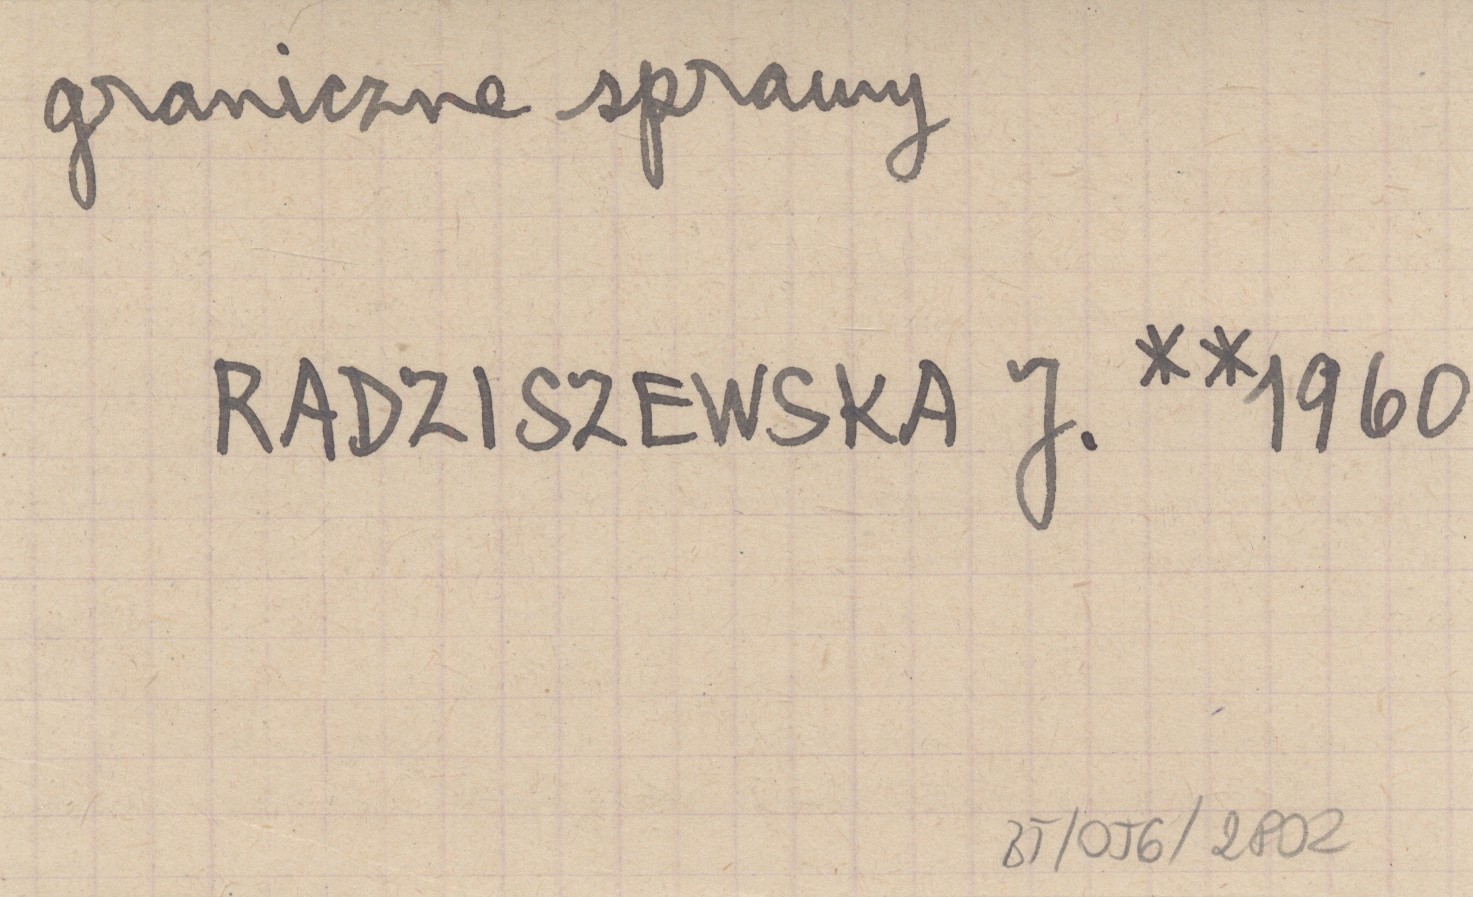 graniczne sprawy
RADZISZEWSKA J. **1960
BT/OJG/2802